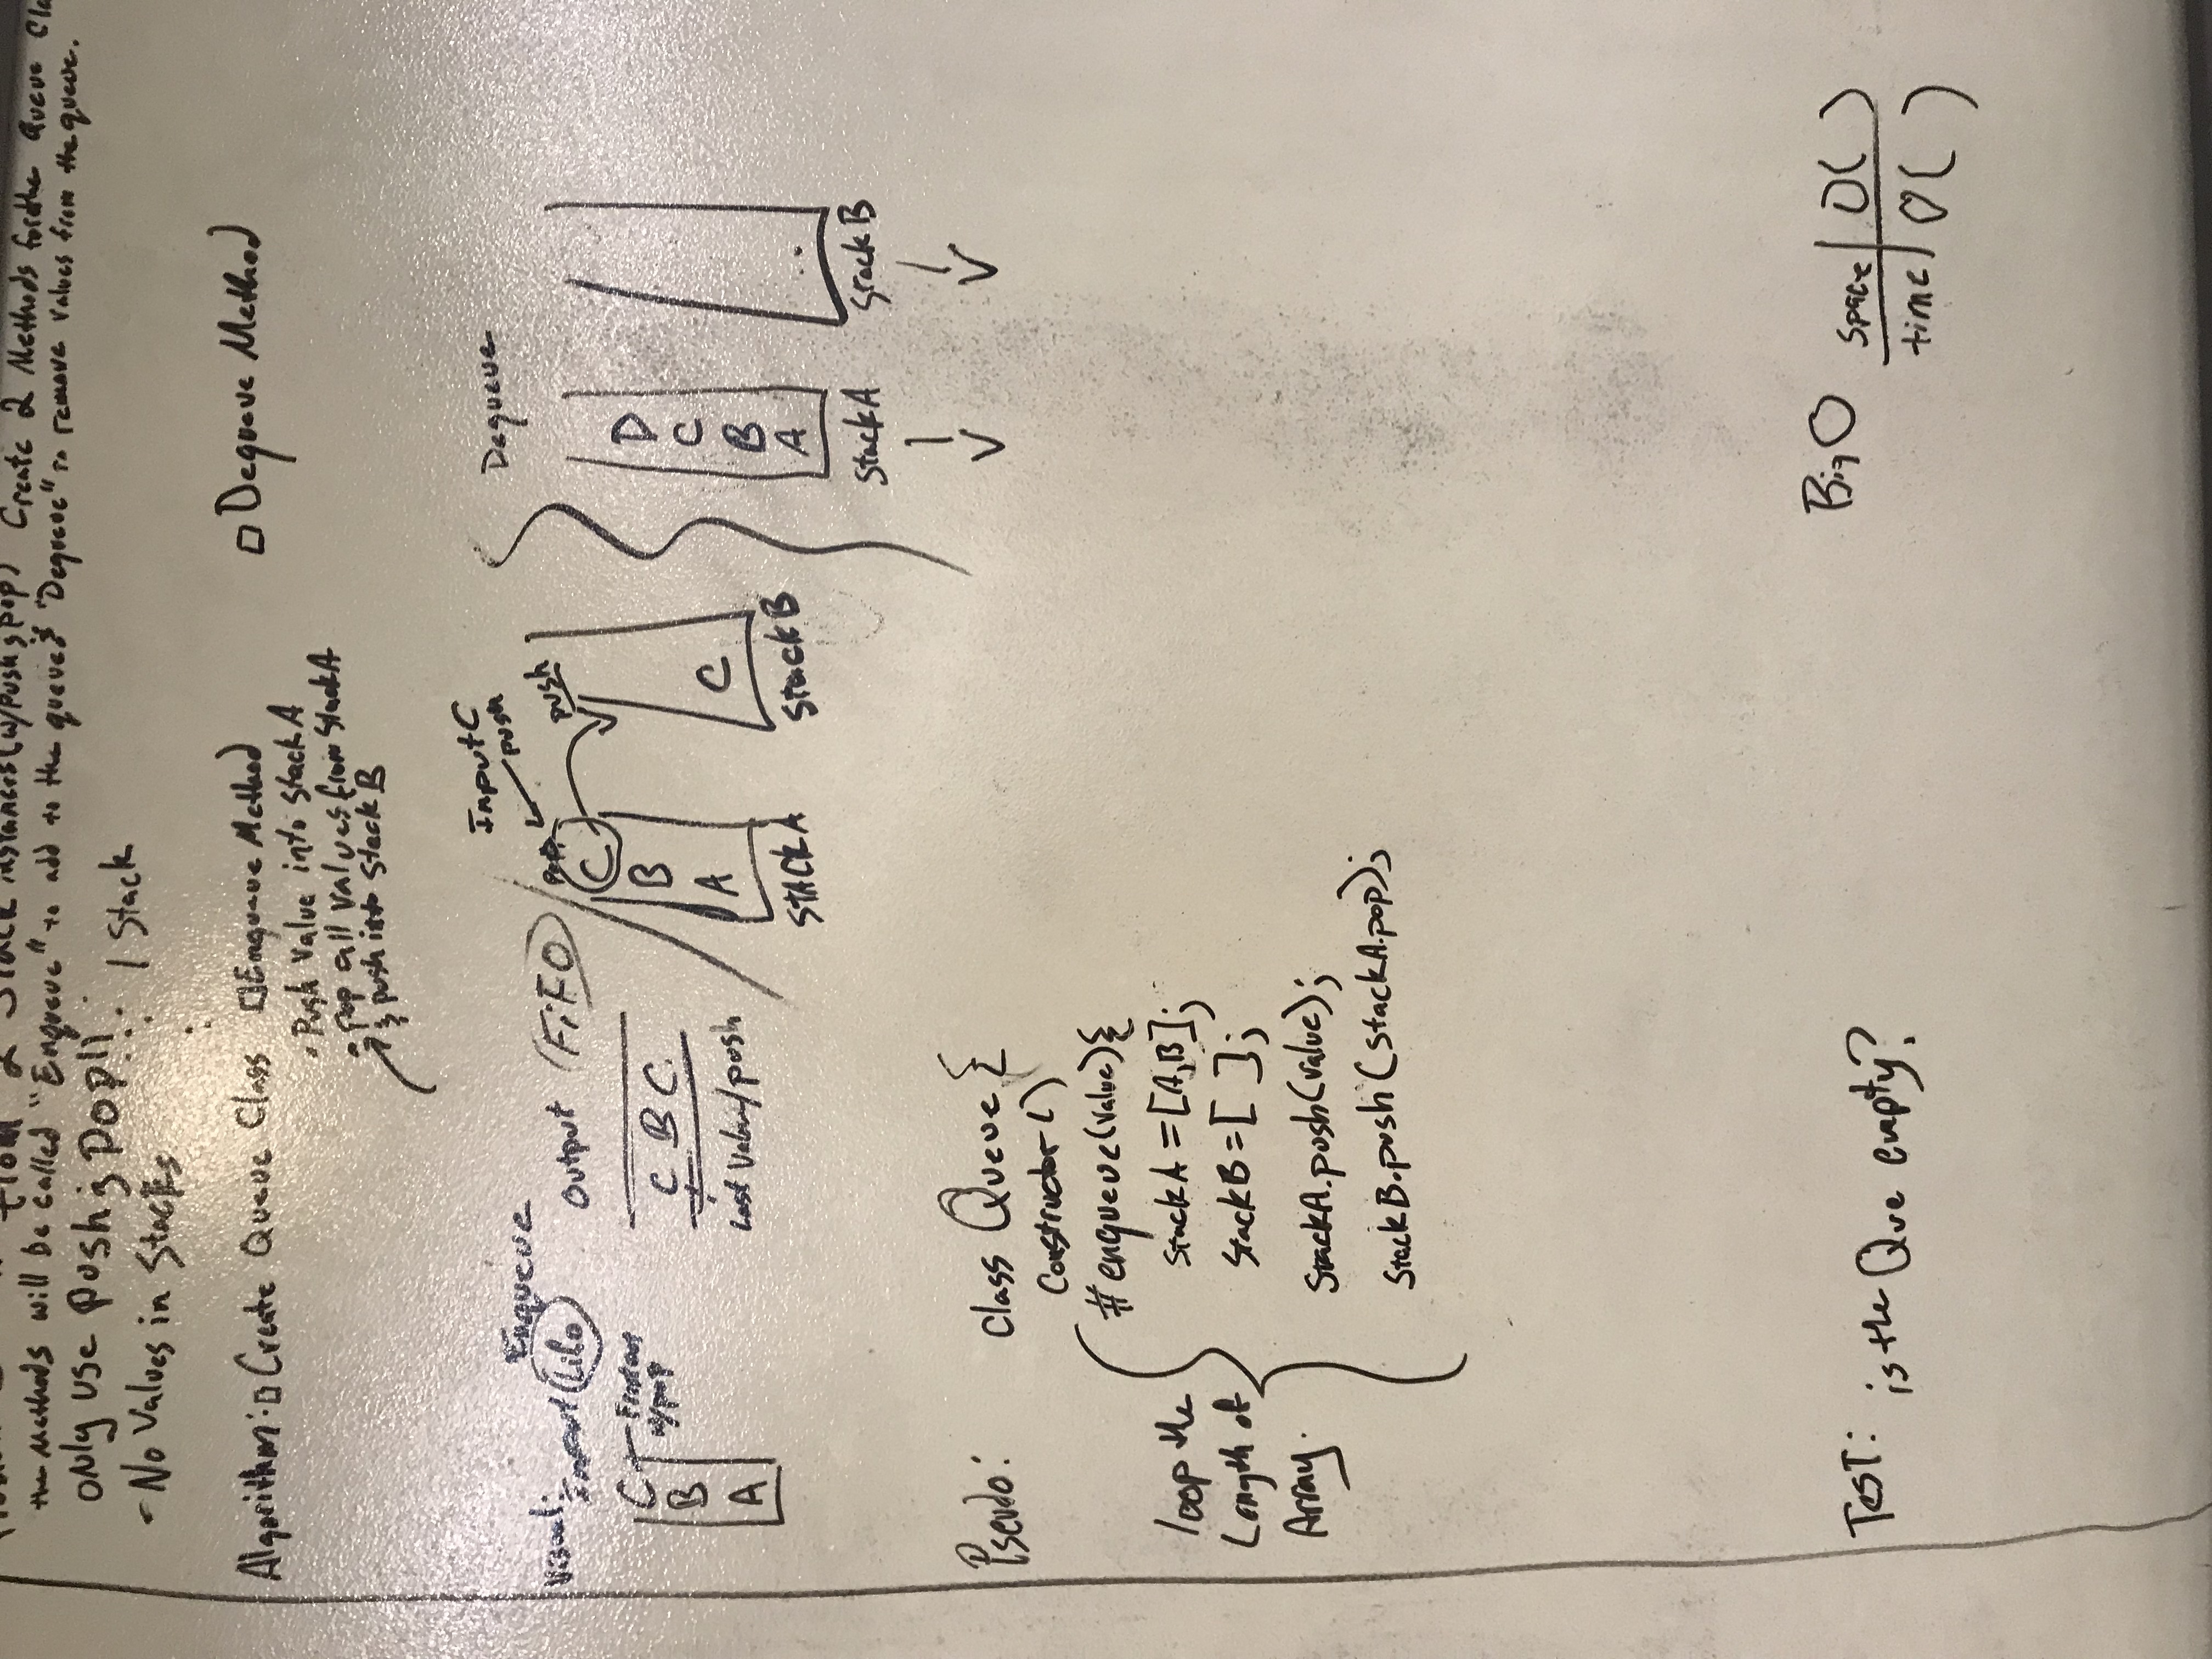 from 2 Stack instances (w/ push & pop) Create 2 Methods for the Queue Cla
the Methods will be called "Enqueue" to add to the queue & "Dequeue" to remove values from the queue.
ONly use Push & Pop!!
- No Values in Stacks
1 Stack
Algorithm: □ Create Queue Class □ Enqueue Method □ Dequeue Method
• Push value into stack A
• Pop all values from Stack A
& push into Stack B
Visual:
Enqueue
Input Lifo
C
B
A
w/pop
Output FiFO
C B C
Last Value w/push
Input C
push
Pop
C
B
A
STACK A
push
C
Stack B
Dequeue
D
C
B
A
Stack A
Stack B
Pseudo:
class Queue {
Constructor ()
# enqueue(value){
stackA = [A,B];
stackB = [ ];
stackA.push(value);
stackB.push(stackA.pop);
loop the
Length of
Array.
Test: is the Que empty?
Big O
space | O( )
time | O( )